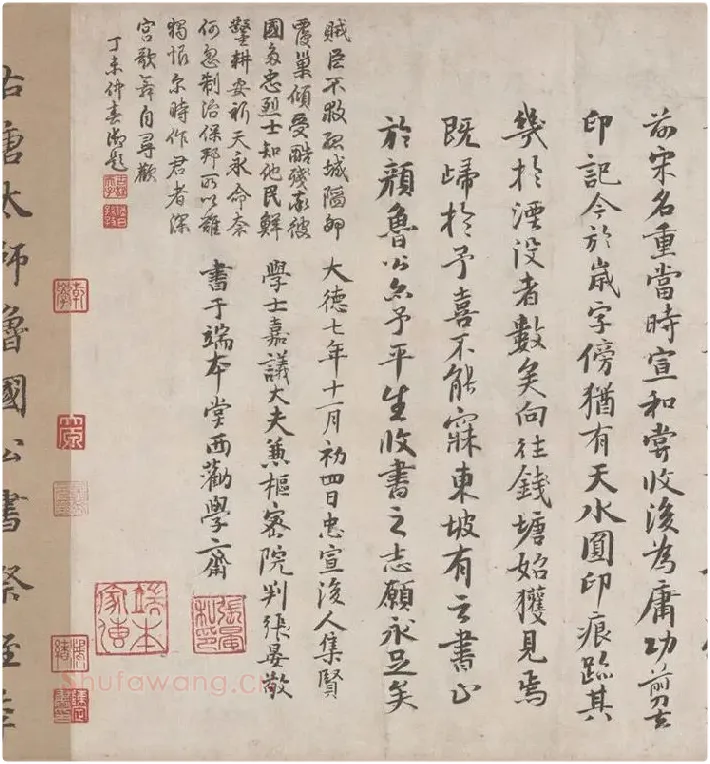 前宋名重當時宣和嘗收後為庸功剪去
印記今於歲字傍猶有天水圓印痕跡其
幾於湮没者數矣向往錢塘始獲見焉
既歸於予喜不能寐東坡有云書止
於顏魯公予平生收書之志願永足矣
大德七年十一月初四日忠宣後人集賢
學士嘉議大夫兼樞密院判張晏敬
書于端本堂西勸學之齋
張晏私印
端本家傳
賊臣不救孤城陷卵
覆巢傾受酷殘彼
國多忠烈士知他民鮮
鑿耕安祈天永命奈
何忽制治保邦所以難
獨恨尔時作君者深
宮歌舞自尋歡
丁未仲春御題
乾學
唐太師魯國公書祭姪
Shufawang.c